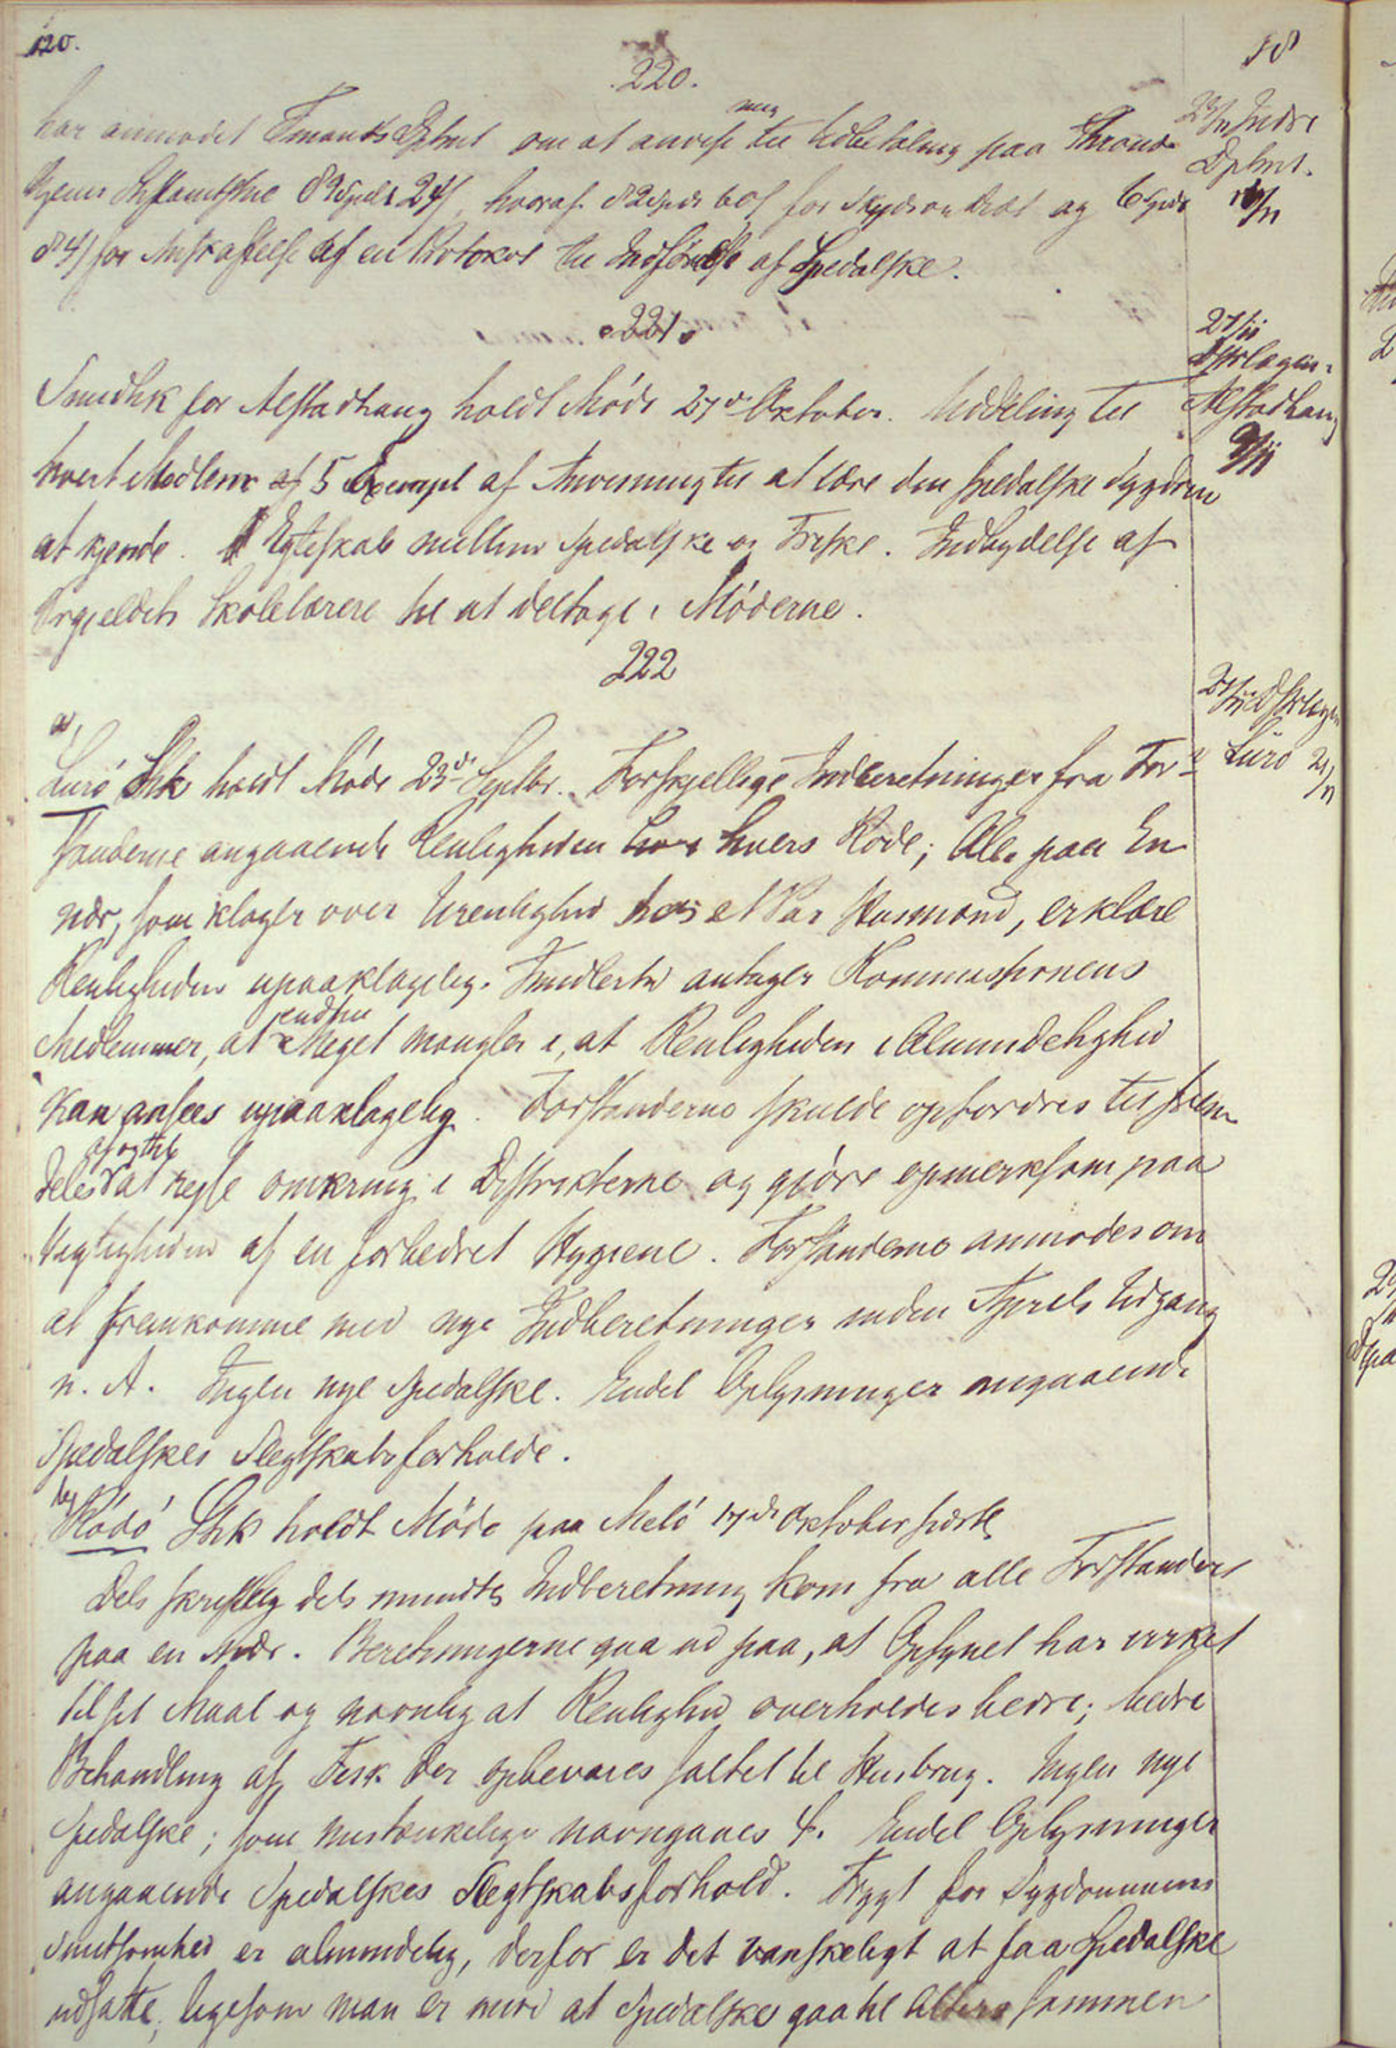 120.
18
220.
har anmodet Finants Dptmt om at anvise mig til Udbetaling paa Thrond-
hjems Stiftamtstue 89 Spd 24 β, hvoraf 82 Spd 60 β for Skyds og Diæt og 6 Spd
84 β for Anskaffelse af en Protokol til Indførelse af Spedalske.
23/11 Indre
Dptmt.
221.
Sundhk for Alstadhaug holdt Møde 27de Oktober. Uddeling til
hvert Medlem af 5 Exempl af Anvisning til at lære den spedalske Sygdom
at kjende. Egteskab mellem Spedalske og Friske. Indbydelse af
Prgjeldets Skolelærere til at deltage i Møderne.
27/11
Dstrlægen.
Alstadhaug
9/11
222
a,
Lurø Shk holdt Møde 23de Septbr. Forskjellige Indberetninger fra For-
standerne angaaende Renligheden i hvers Rode; Alle paa En
nær, som klager over Urenlighed hos et Par Husmænd, erklære
Renligheden upaaklagelig. Imidlertid antager Kommissionens
Medlemmer, at endnu Meget mangler i, at Renligheden i Almindelighed
kan ansees upaaklagelig. Forstanderne skulde opfordres til frem-
deles af og til at reise omkring i Distrikterne og gjøre opmerksom paa
Vigtigheden af en forbedret Hygiene. Forstanderne anmodes om
at fremkomme med nye Indberetninger inden Aprils Udgang
n. A. Ingen nye Spedalske. Endel Oplysninger angaaende
Spedalskes Slegtskabsforholde.
27/11 Dstrlægen
Lurø 21/11
b,
Rødø Shk holdt Møde paa Melø 17de Oktober sidstl.
Dels skriftlig dels mundtlig Indberetning kom fra alle Forstandere
paa en nær. Beretningerne gaa ud paa, at Opsynet har virket
til sit Maal og navnlig at Renlighed overholdes bedre; bedre
Behandling af Fisk der opbevares saltet til Husbrug. Ingen nye
Spedalske; som mistænkelige navngaves 4. Endel Oplysninger
angaaende Spedalskes Slegtskabsforhold. Frygt for Sygdommens
Smitsomhed er almindelig, derfor er det vanskeligt at faa Spedalske
udsatte, ligesom man er imod at Spedalske gaa til Alters sammen